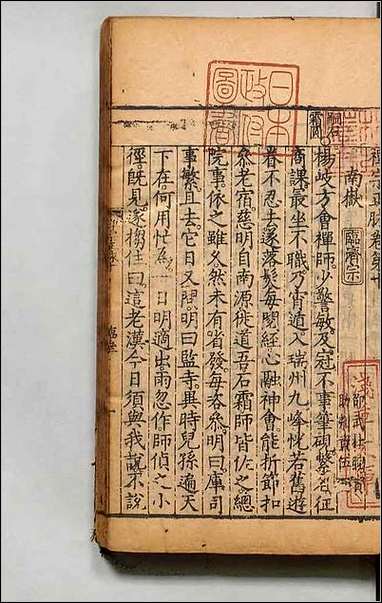 禪宗正脉卷第十
南嶽 臨濟宗
楊岐方會禪師少警敏及冠不事筆硯繫名征
商課最坐不職乃宵遁入瑞州九峰恍若舊遊
眷不忍去遂落髮每閱經心融神會能折節扣
參老宿慈明自南源徙道吾石霜師皆佐之總
院事依之雖久然未有省發每咨參明曰庫司
事繁且去它日又問明曰監寺異時兒孫遍天
下在何用忙爲一日明適出雨忽作師偵之小
徑旣見遂搊住曰這老漢今日須與我說不說
日本
政府
圖書